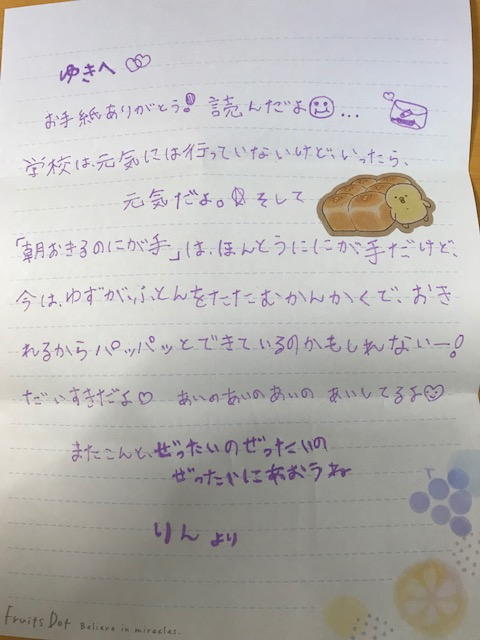 ゆきへ
お手紙ありがとう! 読んだよ...
学校は、元気には行っていないけど、いったら、
元気だよ。そして
「朝おきるのにが手」は、ほんとうににが手だけど、
今は、ゆずが、ふとんをたたむかんかくで、おき
れるからパッパッとできているのかもしれないー!
だいすきだよ♡ あいのあいのあいの あいしてるよ
またこんど、ぜったいのぜったいの
ぜったいにあおうね
りんより
Fruits Dot Believe in miracles.